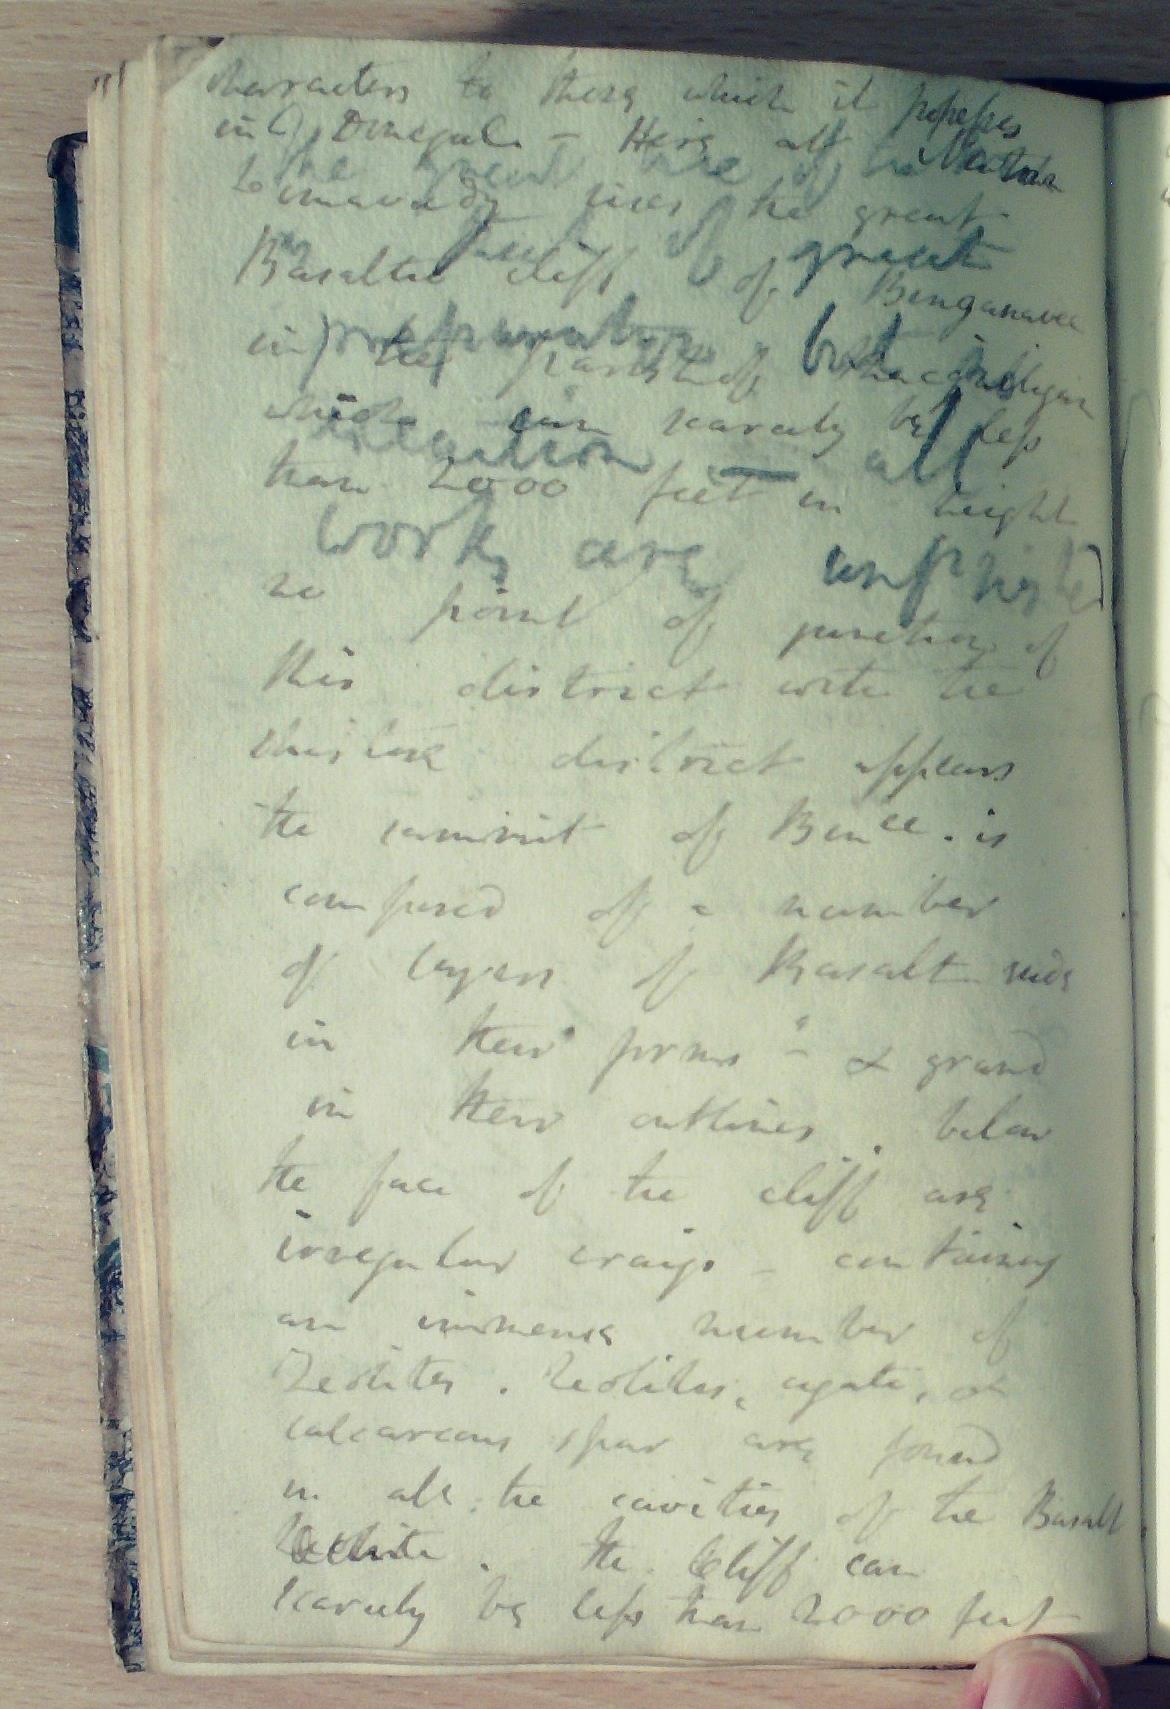 characters to those which it possesses
in Donegal – Here at Newtown
Limavady rises the great
Basaltic cliff of Benganavee
in the parish of
which can scarcely be less
than 2000 feet in height
no point of junction of
this district with the
district appears
the summit of Ben<sup>ee</sup>. is
composed of a number
of layers of Basalt rude
in their forms – & grand
in their outlines. below
the face of the cliff are
irregular craigs – containing
an immense number of
Zeolites. Zeolites, agate, &
calcareous spar are found
in all the cavities of the Basalt
The Cliff can
scarcely be less than 2000 feet
the great of Nature
of great
preparation, but in
all
works are unfinished